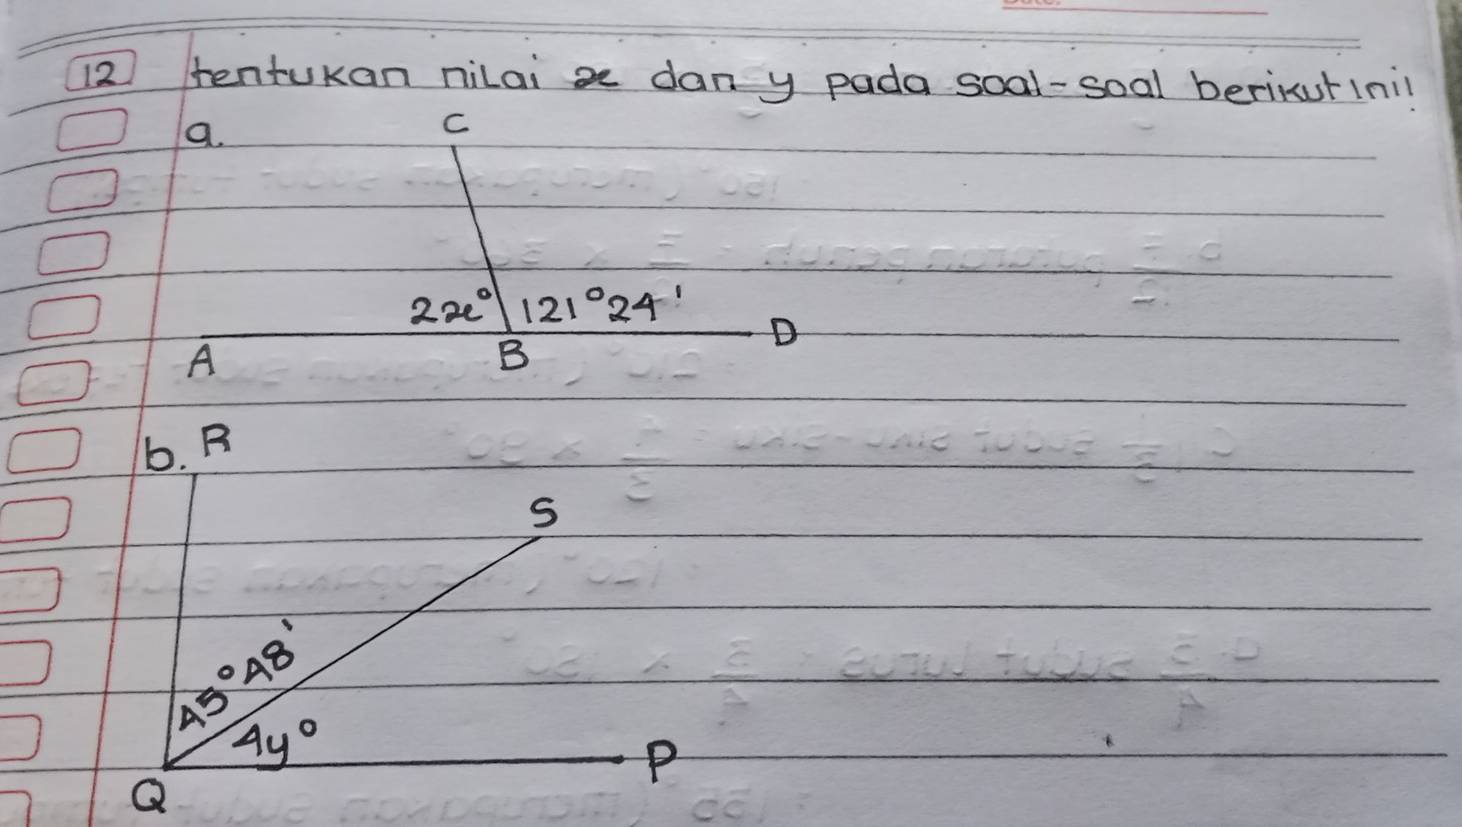 12 tentukan nilai x dan y pada soal-soal berikut ini!
a.
C
2x° 121°24'
A B D
b. R
S
45°48'
4y°
Q P